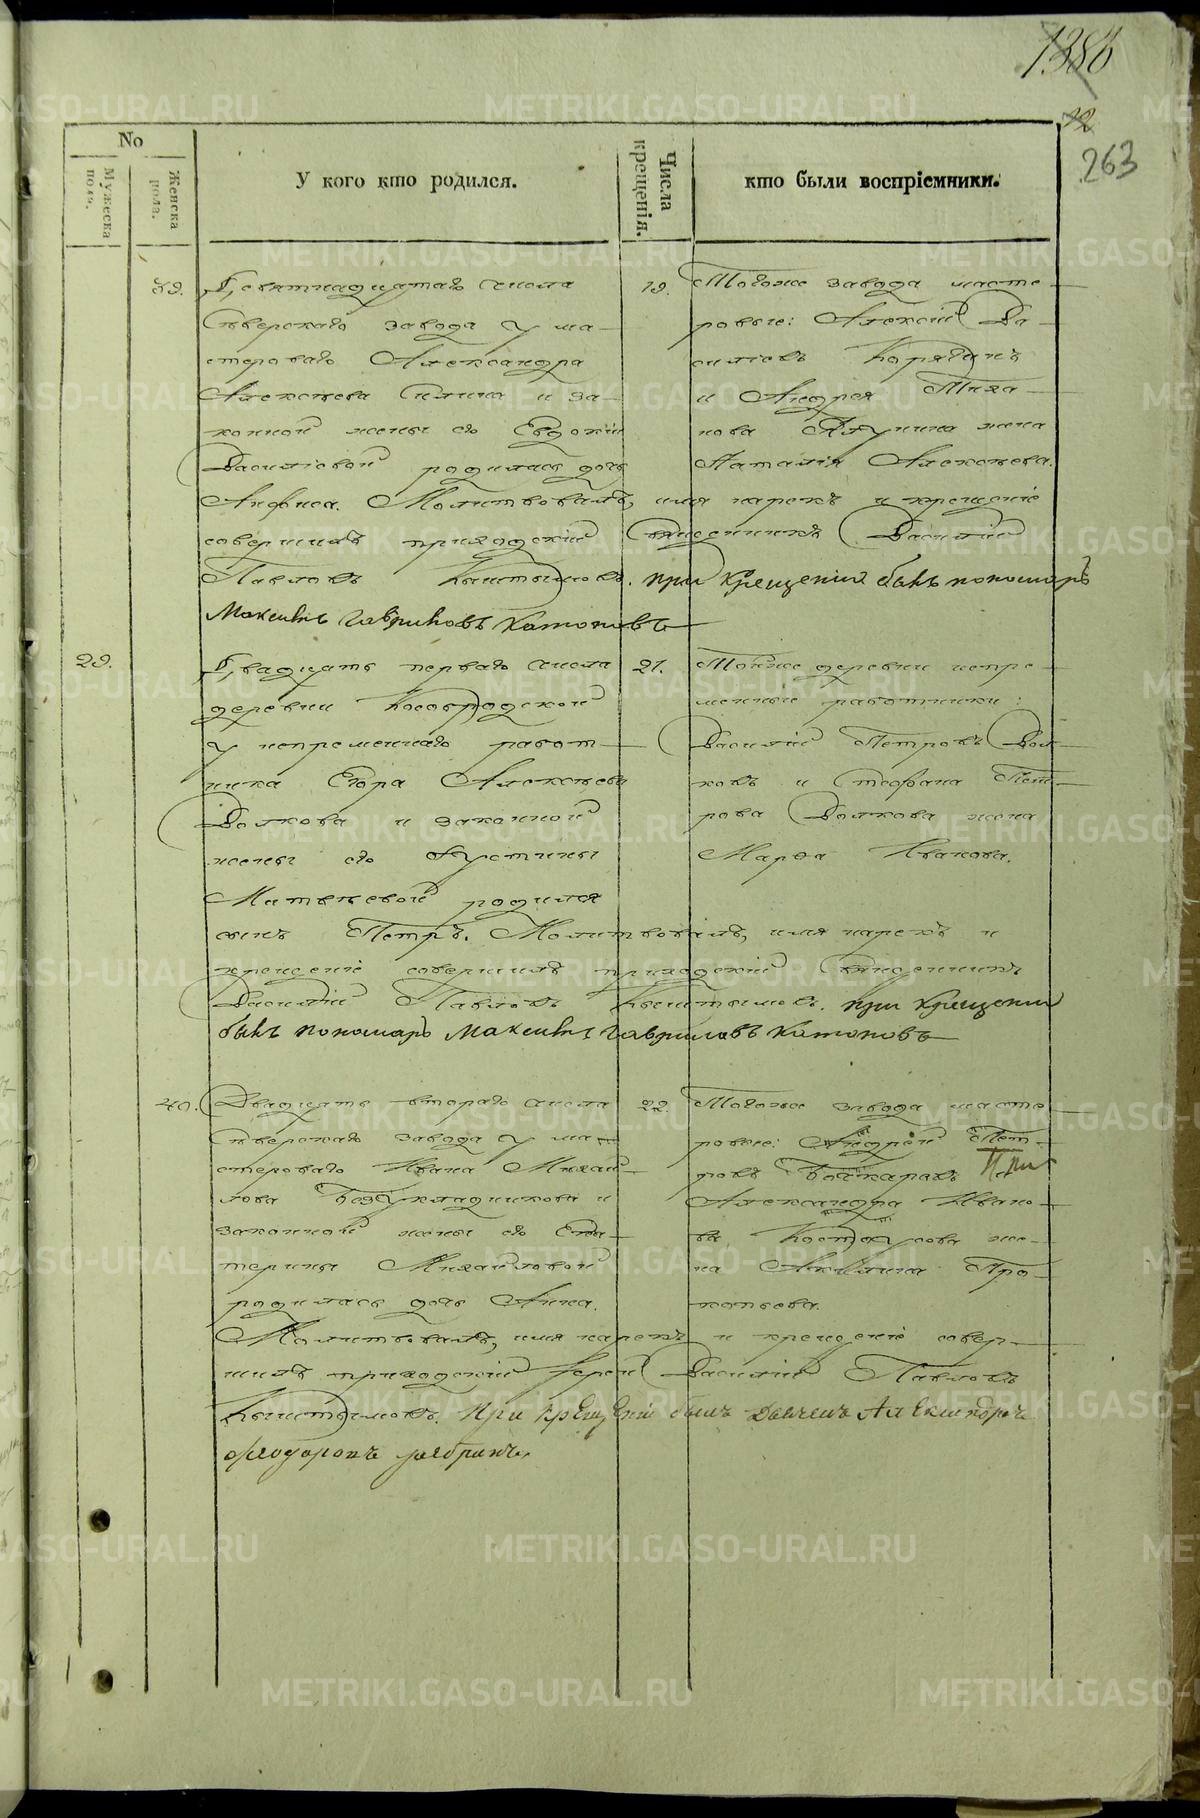 1386
12
263
No
Мужеска пола.
Женска пола.
У кого кто родился.
Числа крещенія.
кто были воспріемники.
39.
Девятнадцатаго числа
Сѣверскаго завода у ма-
стероваго Александра
Алексѣева и за-
конной жены его Евдокіи
Василіевой родилась дочь
Анфиса. Молитвовалъ, имя нарекъ и крещеніе
совершилъ приходскій священникъ Василій
Павловъ Кыштымовъ. при крещеніи былъ пономарь
Максимъ Гавриловъ Катоновъ
19.
Тогоже завода масте-
ровые: Алексій Ва-
силіевъ Корягинъ
и Андрея
жена
Наталія Алексѣева.
29.
Двадцать перваго числа
деревни Кособродской
у непременнаго работ-
ника Егора Алексѣева
Волкова и законной
жены его Іустины
Матвѣевой родился
сынъ Петръ. Молитвовалъ, имя нарекъ и
крещеніе совершилъ приходскій священникъ
Василій Павловъ Кыштымовъ. при крещеніи
былъ пономарь Максимъ Гавриловъ Катоновъ
21.
Тойже деревни непре-
менніи работники:
Василій Петровъ Вол-
ковъ и Стефана Пет-
рова Волкова жена
Марѳа Иванова.
40.
Двадцать втораго числа
Сѣверскаго завода у ма-
стероваго Ивана Михай-
лова Безукладникова и
законной жены его Ека-
терины Михайловой
родилась дочь Анна.
Молитвовалъ, имя нарекъ и крещеніе совер-
шилъ приходскій Іерей Василій Павловъ
Кыштымовъ. При крещеніи былъ дьячекъ Александръ
Ѳеодоровъ
22.
Тогоже завода масте-
ровые: Андрей Пет-
ровъ и
Александра Ивано-
ва Костоусова же-
на Акилина Про-
копьева.
METRIKI.GASO-URAL.RU